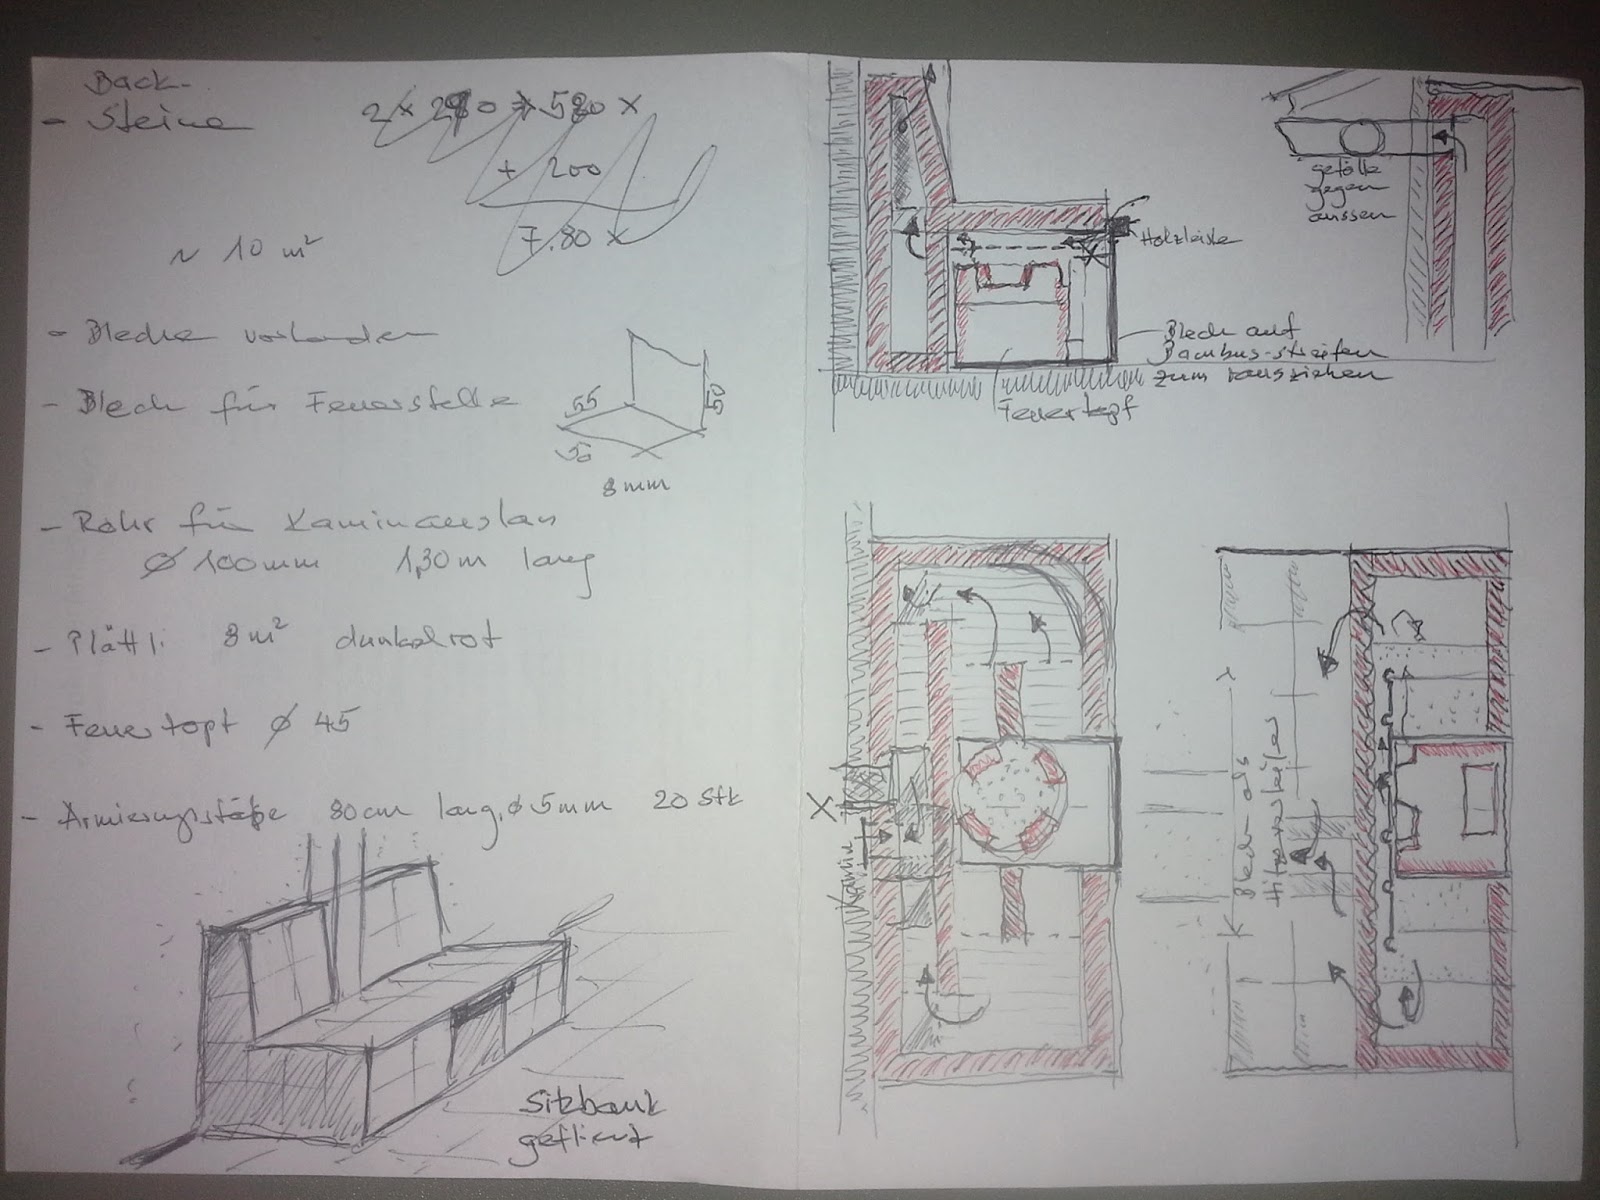 Back-
- Steine
+ 200
~ 10 m²
- Bleche vorhanden
- Blech für Feuerstelle
55
50
50
8mm
- Rohr für Kaminauslass
Ø 100mm 1,30m lang
- Plättli 8m² dunkelrot
- Feuertopf Ø 45
- Armierungsstäbe 80cm lang, Ø 5mm 20 Stk
Sitzbank
gefliest
Holzleiste
Blech auf
Bambus-streifen
zum rausziehen
Feuertopf
gefälle
gegen
aussen
X
Kamin
Blech als
Hitzeschleife